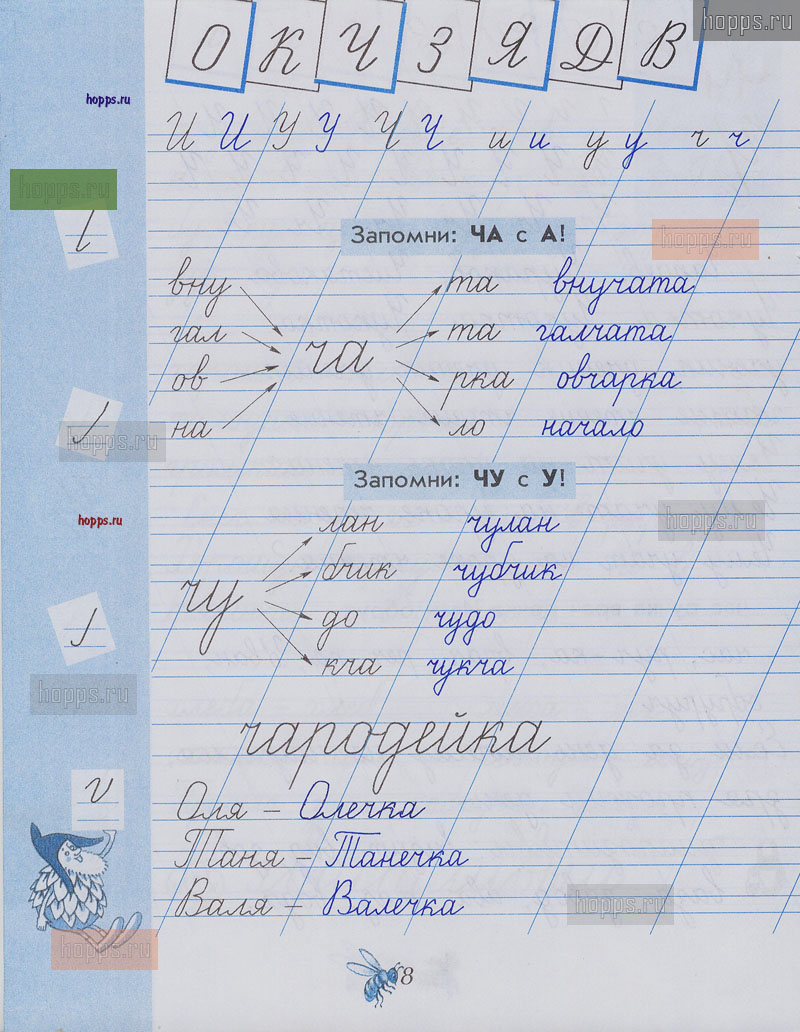 О К Ч З Я Д В
hopps.ru
hopps.ru
И И У У Ч Ч и и у у ч ч
hopps.ru
Запомни: ЧА с А!
hopps.ru
вну та внучата
гал та галчата
ча
ов рка овчарка
на ло начало
hopps.ru
Запомни: ЧУ с У!
hopps.ru
hopps.ru
лан чулан
бчик чубчик
чу
до чудо
кча чукча
hopps.ru
чародейка
Оля – Олечка
Таня – Танечка
Валя – Валечка
hopps.ru
hopps.ru
8